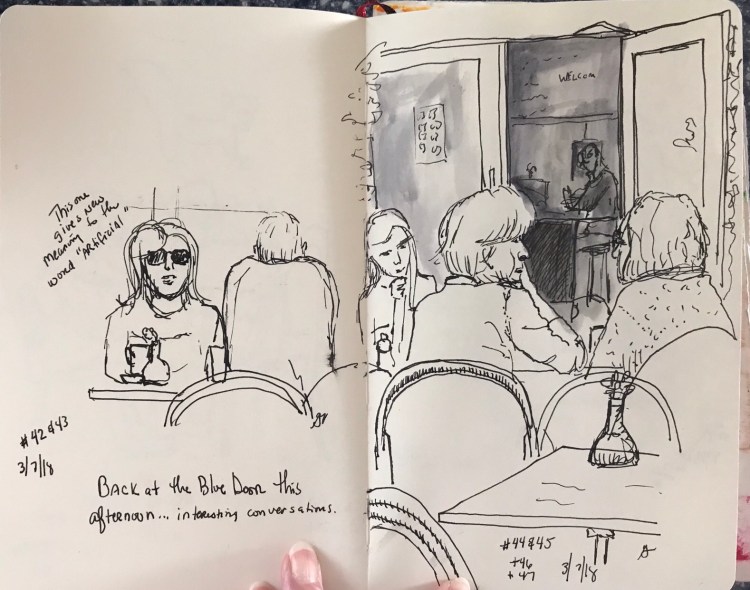 This one
gives new
meaning to the
word "Artificial"
#42&43
3/7/18
BACK at the Blue Door this
afternoon... interesting conversations.
WELCOM
#44&45
+46
+47
3/7/18